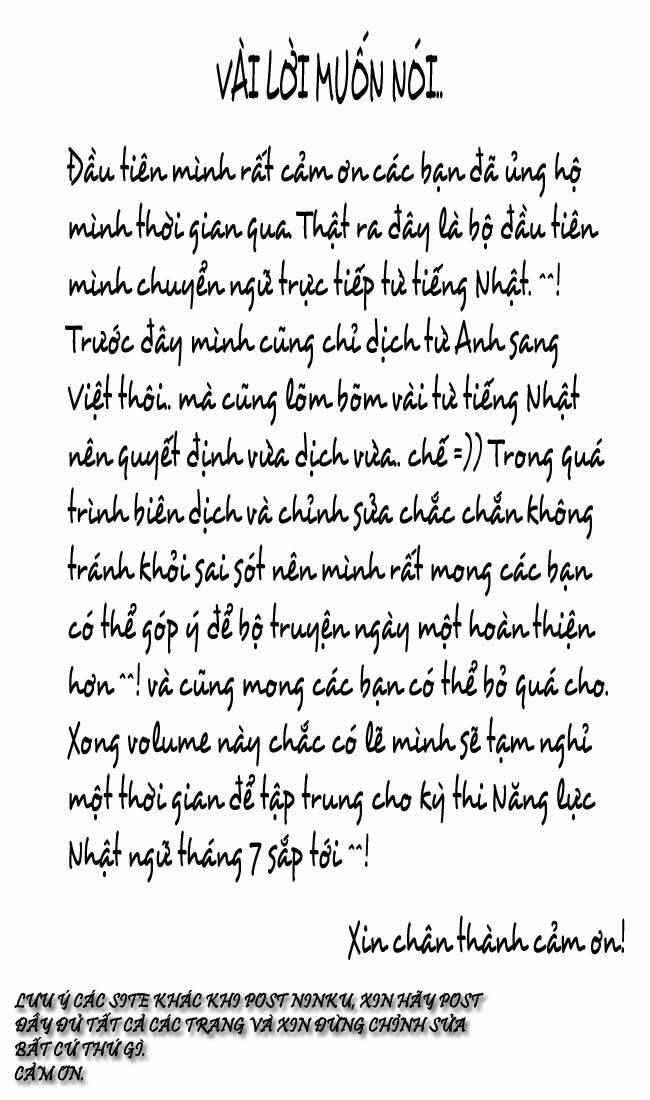 VÀI LỜI MUỐN NÓI..
Đầu tiên mình rất cảm ơn các bạn đã ủng hộ
mình thời gian qua. Thật ra đây là bộ đầu tiên
mình chuyển ngữ trực tiếp từ tiếng Nhật. ^^!
Trước đây mình cũng chỉ dịch từ Anh sang
Việt thôi.. mà cũng lõm bõm vài từ tiếng Nhật
nên quyết định vừa dịch vừa.. chế =)) Trong quá
trình biên dịch và chỉnh sửa chắc chắn không
tránh khỏi sai sót nên mình rất mong các bạn
có thể góp ý để bộ truyện ngày một hoàn thiện
hơn ^^! và cũng mong các bạn có thể bỏ quá cho.
Xong volume này chắc có lẽ mình sẽ tạm nghỉ
một thời gian để tập trung cho kỳ thi Năng lực
Nhật ngữ tháng 7 sắp tới ^^!
Xin chân thành cảm ơn!
LƯU Ý CÁC SITE KHÁC KHI POST NINKU, XIN HÃY POST
ĐẦY ĐỦ TẤT CẢ CÁC TRANG VÀ XIN ĐỪNG CHỈNH SỬA
BẤT CỨ THỨ GÌ.
CẢM ƠN.